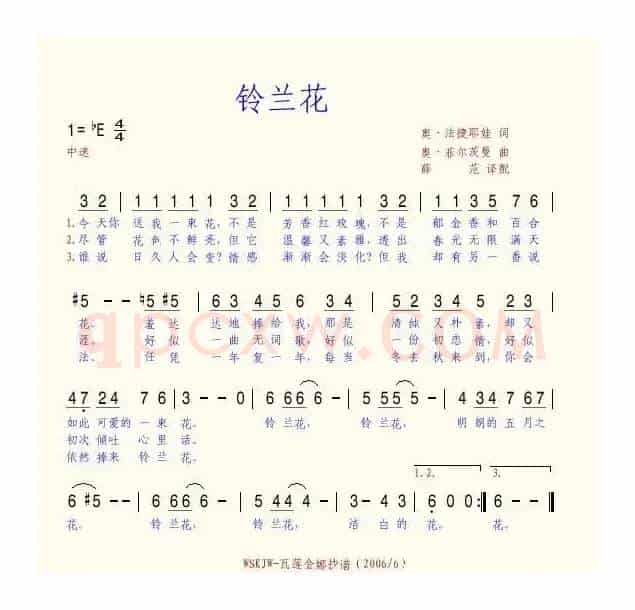 铃兰花
1= ♭E 4/4
奥·法捷耶娃 词
中速
奥·菲尔茨曼 曲
薛 范 译配
3 2 | 1 1 1 1 1 3 2 | 1 1 1 1 1 3 2 | 1 1 3 5 7 6 |
1.今天你 送我一束花,不是 芳香红玫瑰,不是 郁金香和百合
2.尽管 花色不鲜亮,但它 温馨又素雅,透出 春光无限满天
3.谁说 日久人会变?情感 渐渐会淡化?但我 却有另一番说
#5 - - ♮5 #5 | 6 3 4 5 6 3 4 | 5 2 3 4 5 2 3 |
花。 羞达 达地捧给我,那是 清纯又朴素,却又
涯。 好似 一曲无词歌,好似 一份初恋情,好似
法。 任凭 一年复一年,每当 冬去秋来到,你会
4 7 2 4 7 6 | 3 - - 0 | 6 6 6 6 - | 5 5 5 5 - | 4 3 4 7 6 7 |
如此 可爱的一束 花。 铃兰花, 铃兰花, 明朗的五月之
初次 倾吐 心里 话。
依然 捧来 铃兰 花。
1.2. 3.
6 #5 - - | 6 6 6 6 - | 5 4 4 4 - | 3 - 4 3 | 6 0 0 :‖ 6 - - ‖
花。 铃兰花, 铃兰花, 洁白的 花。 花。
WSKJW-瓦莲金娜抄谱(2006/6)
qpcxw.com